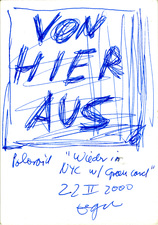 VON
HIER
AUS
Polaroid "Wieder in
NYC w/ Green card"
22 II 2000